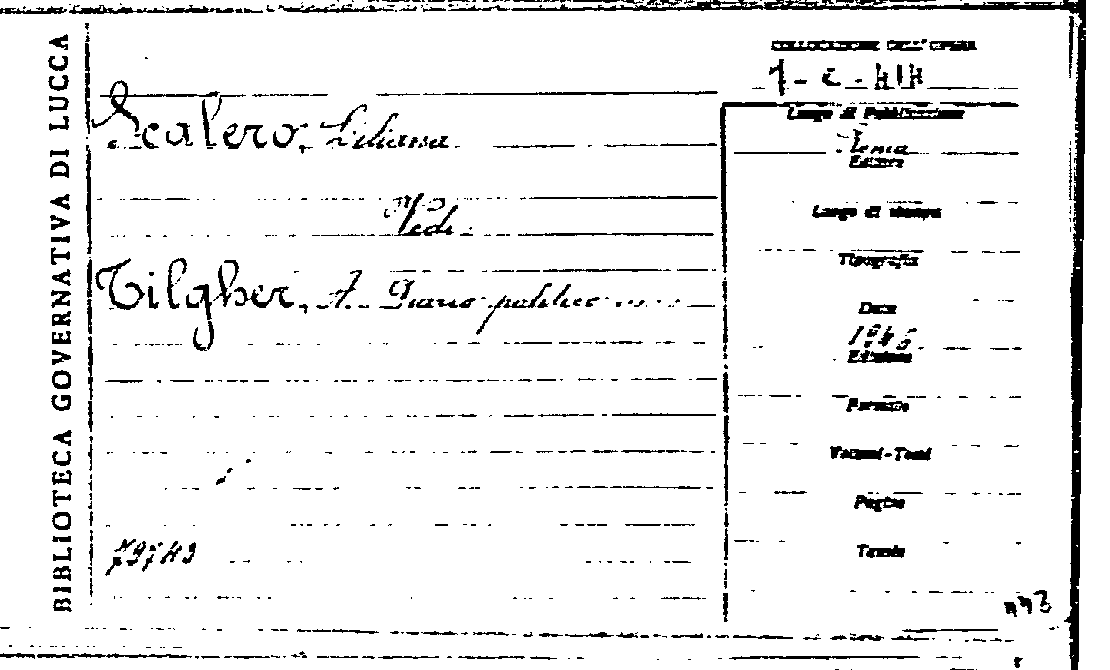 BIBLIOTECA GOVERNATIVA DI LUCCA
COLLOCAZIONE DELL'OPERA
Scalero, Liliana
Vedi
Tilgher, A. Diario politico ....
Luogo di Pubblicazione
Roma
Editore
Luogo di stampa
Tipografia
Data
1946
Edizione
Formato
Volumi-Tomi
Pagine
Tavole